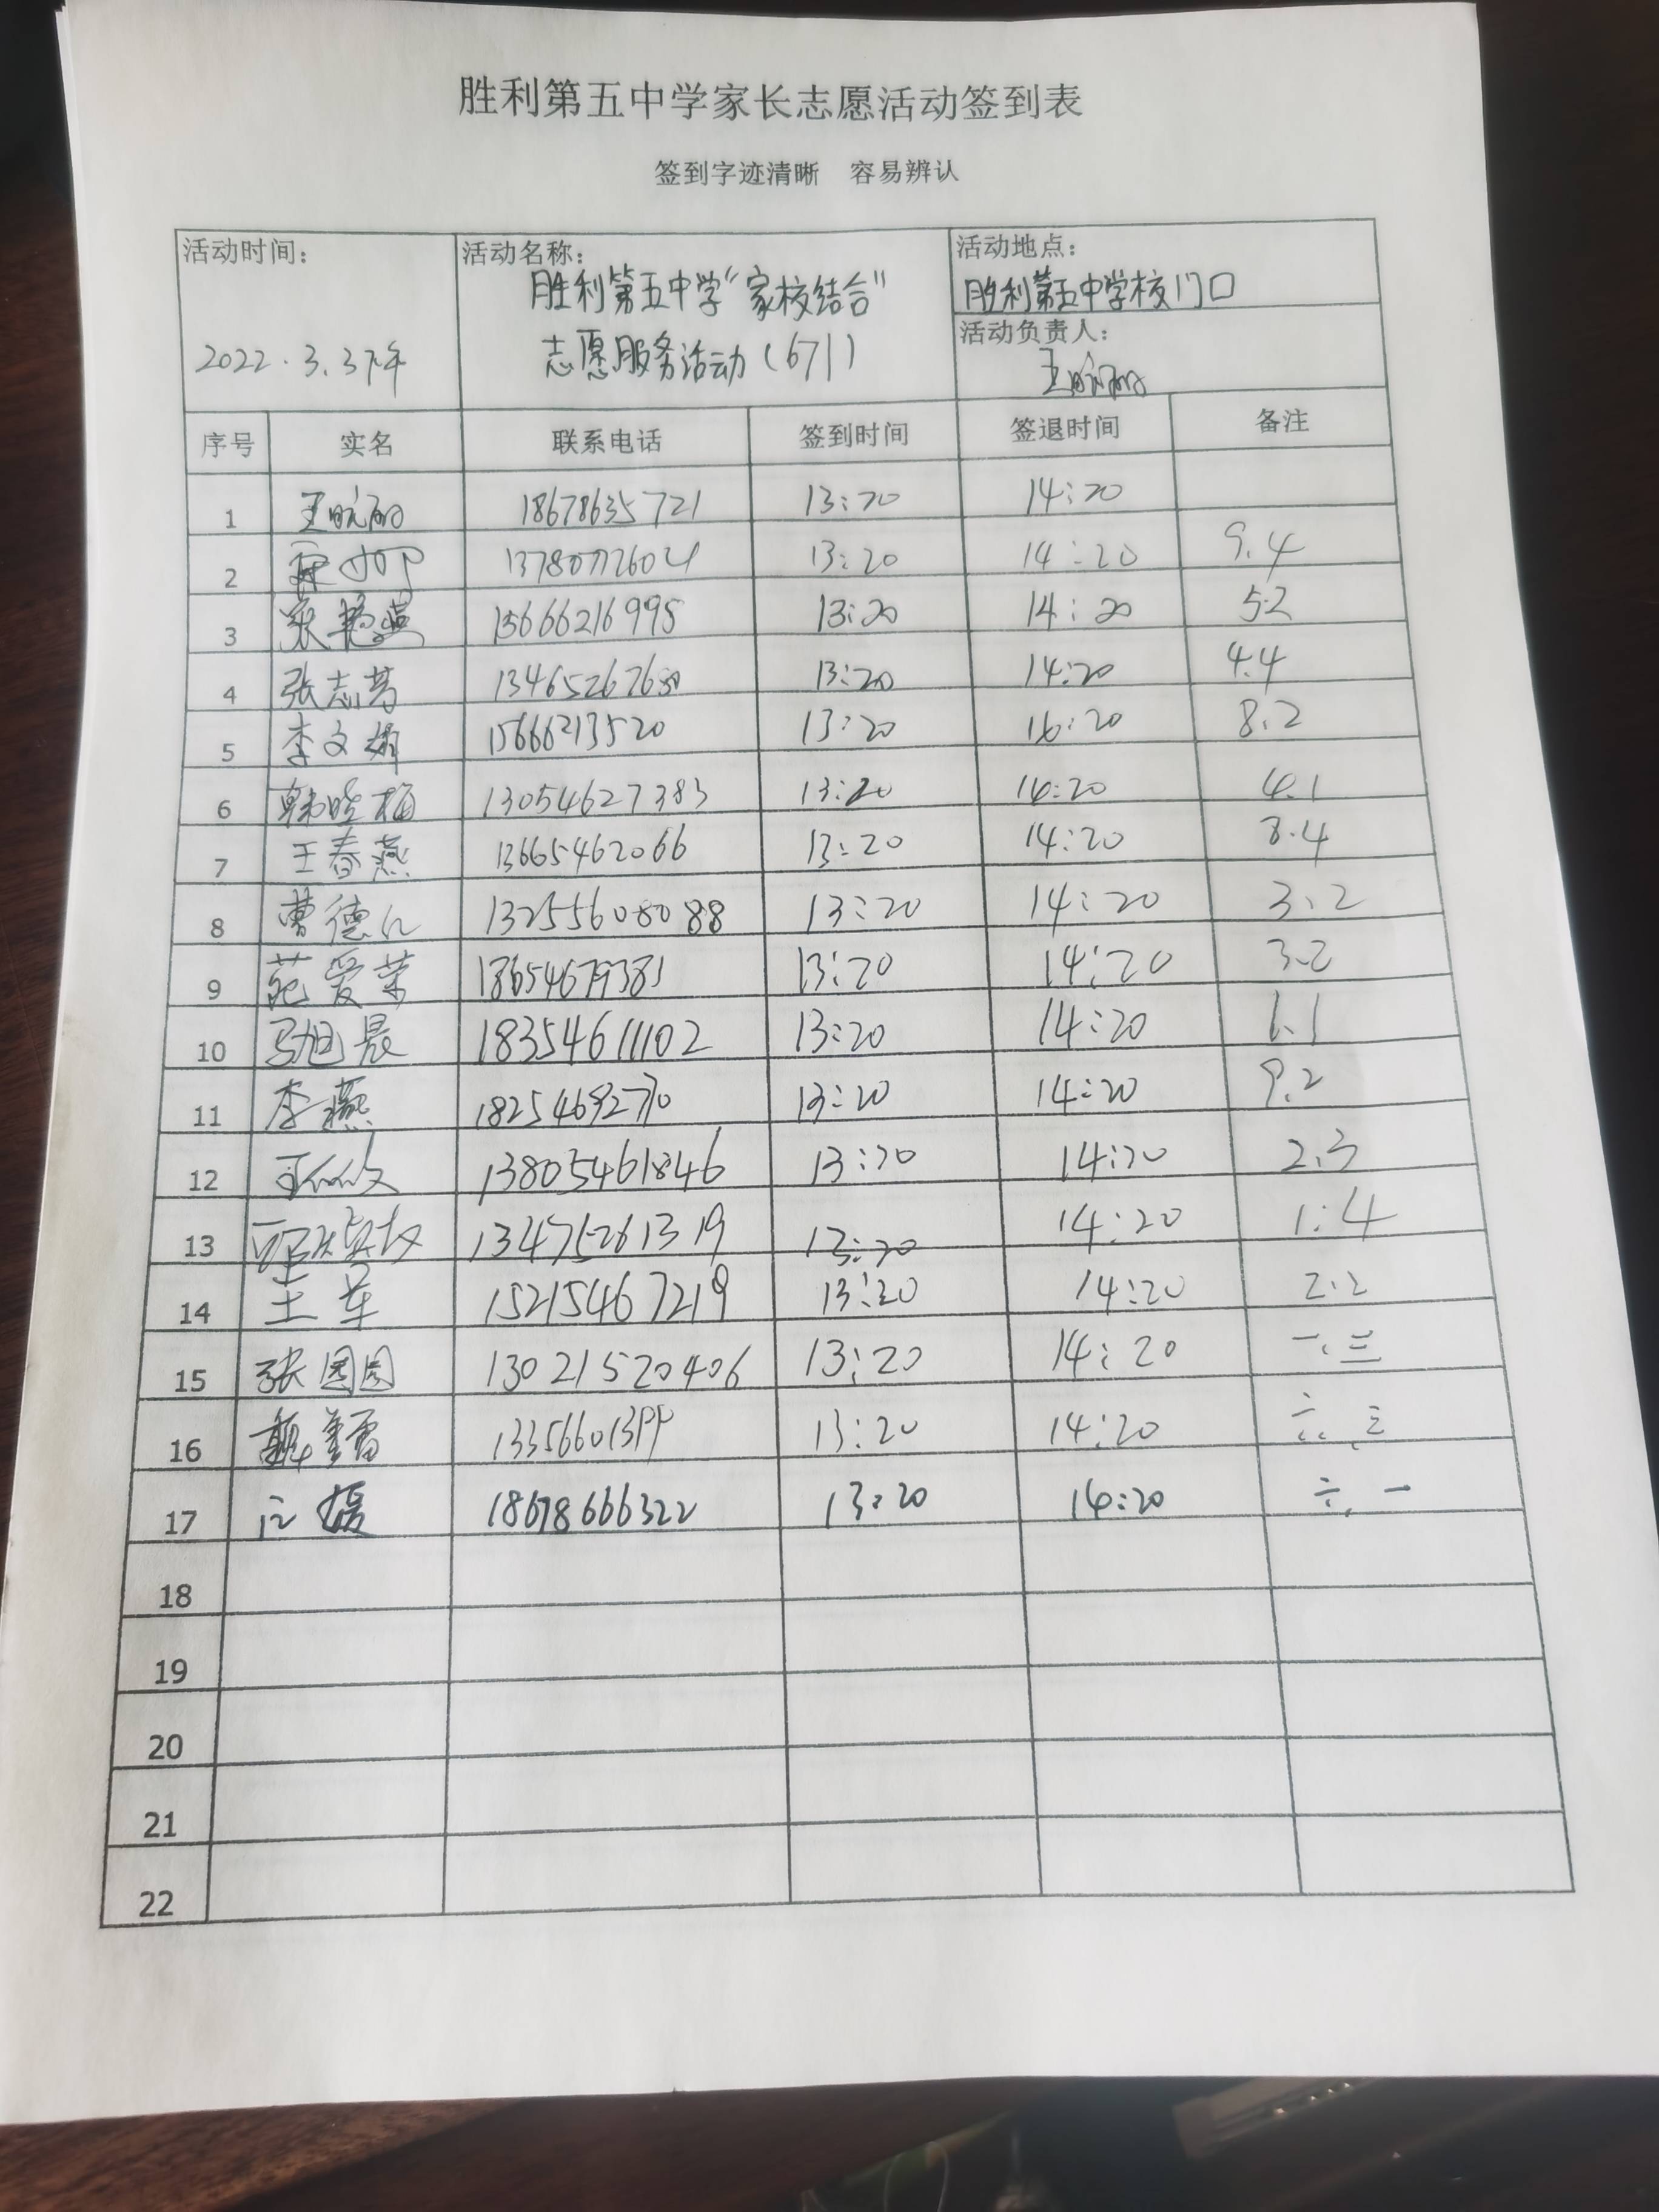 胜利第五中学家长志愿活动签到表
签到字迹清晰 容易辨认
活动时间：
2022.3.3下午
活动名称：
胜利第五中学“家校结合”
志愿服务活动（671）
活动地点：
胜利第五中学校门口
活动负责人：
序号 实名 联系电话 签到时间 签退时间 备注
1 18678635721 13:20 14:20
2 13:20 14:20 9.4
3 张艳燕 15666216995 13:20 14:20 5.2
4 张志芳 13:20 14:20 4.4
5 李文娟 15666213520 13:20 14:20 8.2
6 韩晓梅 13054627383 13:20 14:20 4.1
7 王春燕 13665462066 13:20 14:20 8.4
8 曹德仁 13255608088 13:20 14:20 3.2
9 苑爱荣 18654679381 13:20 14:20 3.2
10 马旭晨 18354611102 13:20 14:20 6.1
11 李燕 13:20 14:20 9.2
12 13805461846 13:20 14:20 2.3
13 13475261319 13:20 14:20 1:4
14 王军 15215467219 13:20 14:20 2.2
15 张圆圆 13021520406 13:20 14:20 一.三
16 13:20 14:20 六.三
17 18678666322 13:20 14:20 六.一
18
19
20
21
22